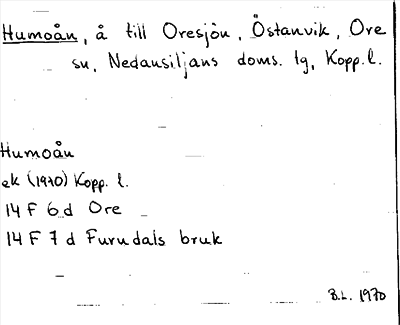 Humoån, å till Oresjön, Östanvik, Ore
sn, Nedansiljans doms. lg, Kopp. l.
Humoån
ek (1970) Kopp. l.
14 F 6 d Ore
14 F 7 d Furudals bruk
B.L. 1970